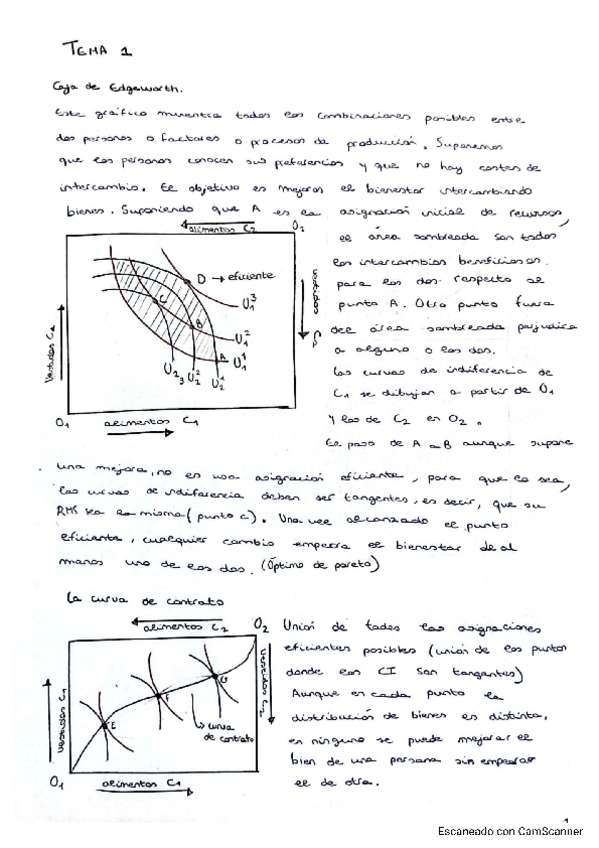 TEMA 1
Caja de Edgeworth.
Este gráfico muestra todas las combinaciones posibles entre
dos personas o factores o procesos de producción. Suponemos
que las personas conocen sus preferencias y que no hay costes de
intercambio. El objetivo es mejorar el bienestar intercambiando
bienes. Suponiendo que A es la asignación inicial de recursos,
el área sombreada son todos
los intercambios beneficiosos
para los dos respecto al
punto A. Otro punto fuera
del área sombreada perjudica
a alguno o los dos.
Las curvas de indiferencia de
C1 se dibujan a partir de O1
y las de C2 en O2.
El paso de A a B aunque supone
alimentos C2
O2
D → eficiente
C
B
A
U1^3
U1^2
U1^1
U2^3 U2^2 U2^1
Vestidos C1
vestidos C2
O1
alimentos C1
una mejora, no es una asignación eficiente, para que lo sea,
las curvas de indiferencia deben ser tangentes, es decir, que su
RMS sea la misma (punto C). Una vez alcanzado el punto
eficiente, cualquier cambio empeora el bienestar de al
menos uno de los dos. (Óptimo de pareto)
La curva de contrato
alimentos C2
O2
Vestidos C1
Vestidos C2
E
F
G
curva
de contrato
O1
alimentos C1
Unión de todas las asignaciones
eficientes posibles (unión de los puntos
donde las CI son tangentes)
Aunque en cada punto la
distribución de bienes es distinta,
en ninguno se puede mejorar el
bien de una persona sin empeorar
el de otra.
1
Escaneado con CamScanner